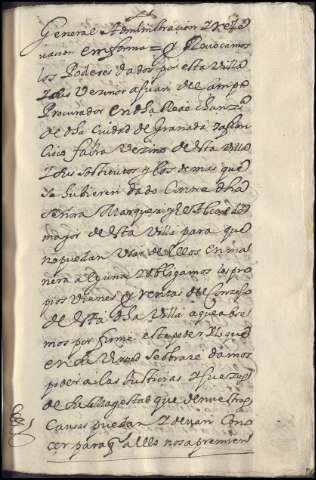 General Administracion Y Rele
vacion en forma = Y Revocamos
los Poderes dados por esta Villa
Y sus Vezinos a Juan del Campo
Procurador en la Real Chanzi
de dha Ciudad de Granada Y a fran
cisco Vezino de esta Villa
Y sus Sostitutos y los demas que
se Ubieren dado Contra dha
señora Marquesa y el Alcalde
mayor de esta Villa para que
no puedan Usar de Ellos en ma
nera alguna Y obligamos los pro
pios Vienes Y Rentas del Conzejo
de esta dha Villa a que abre
mos por firme este poder Y lo que
en Su Virtud Se obrare damos
poder a las Justicias Y Juezes
de Su Magestad que de nuestras
Causas puedan Y devan Cono
cer para que a ello nos apremien